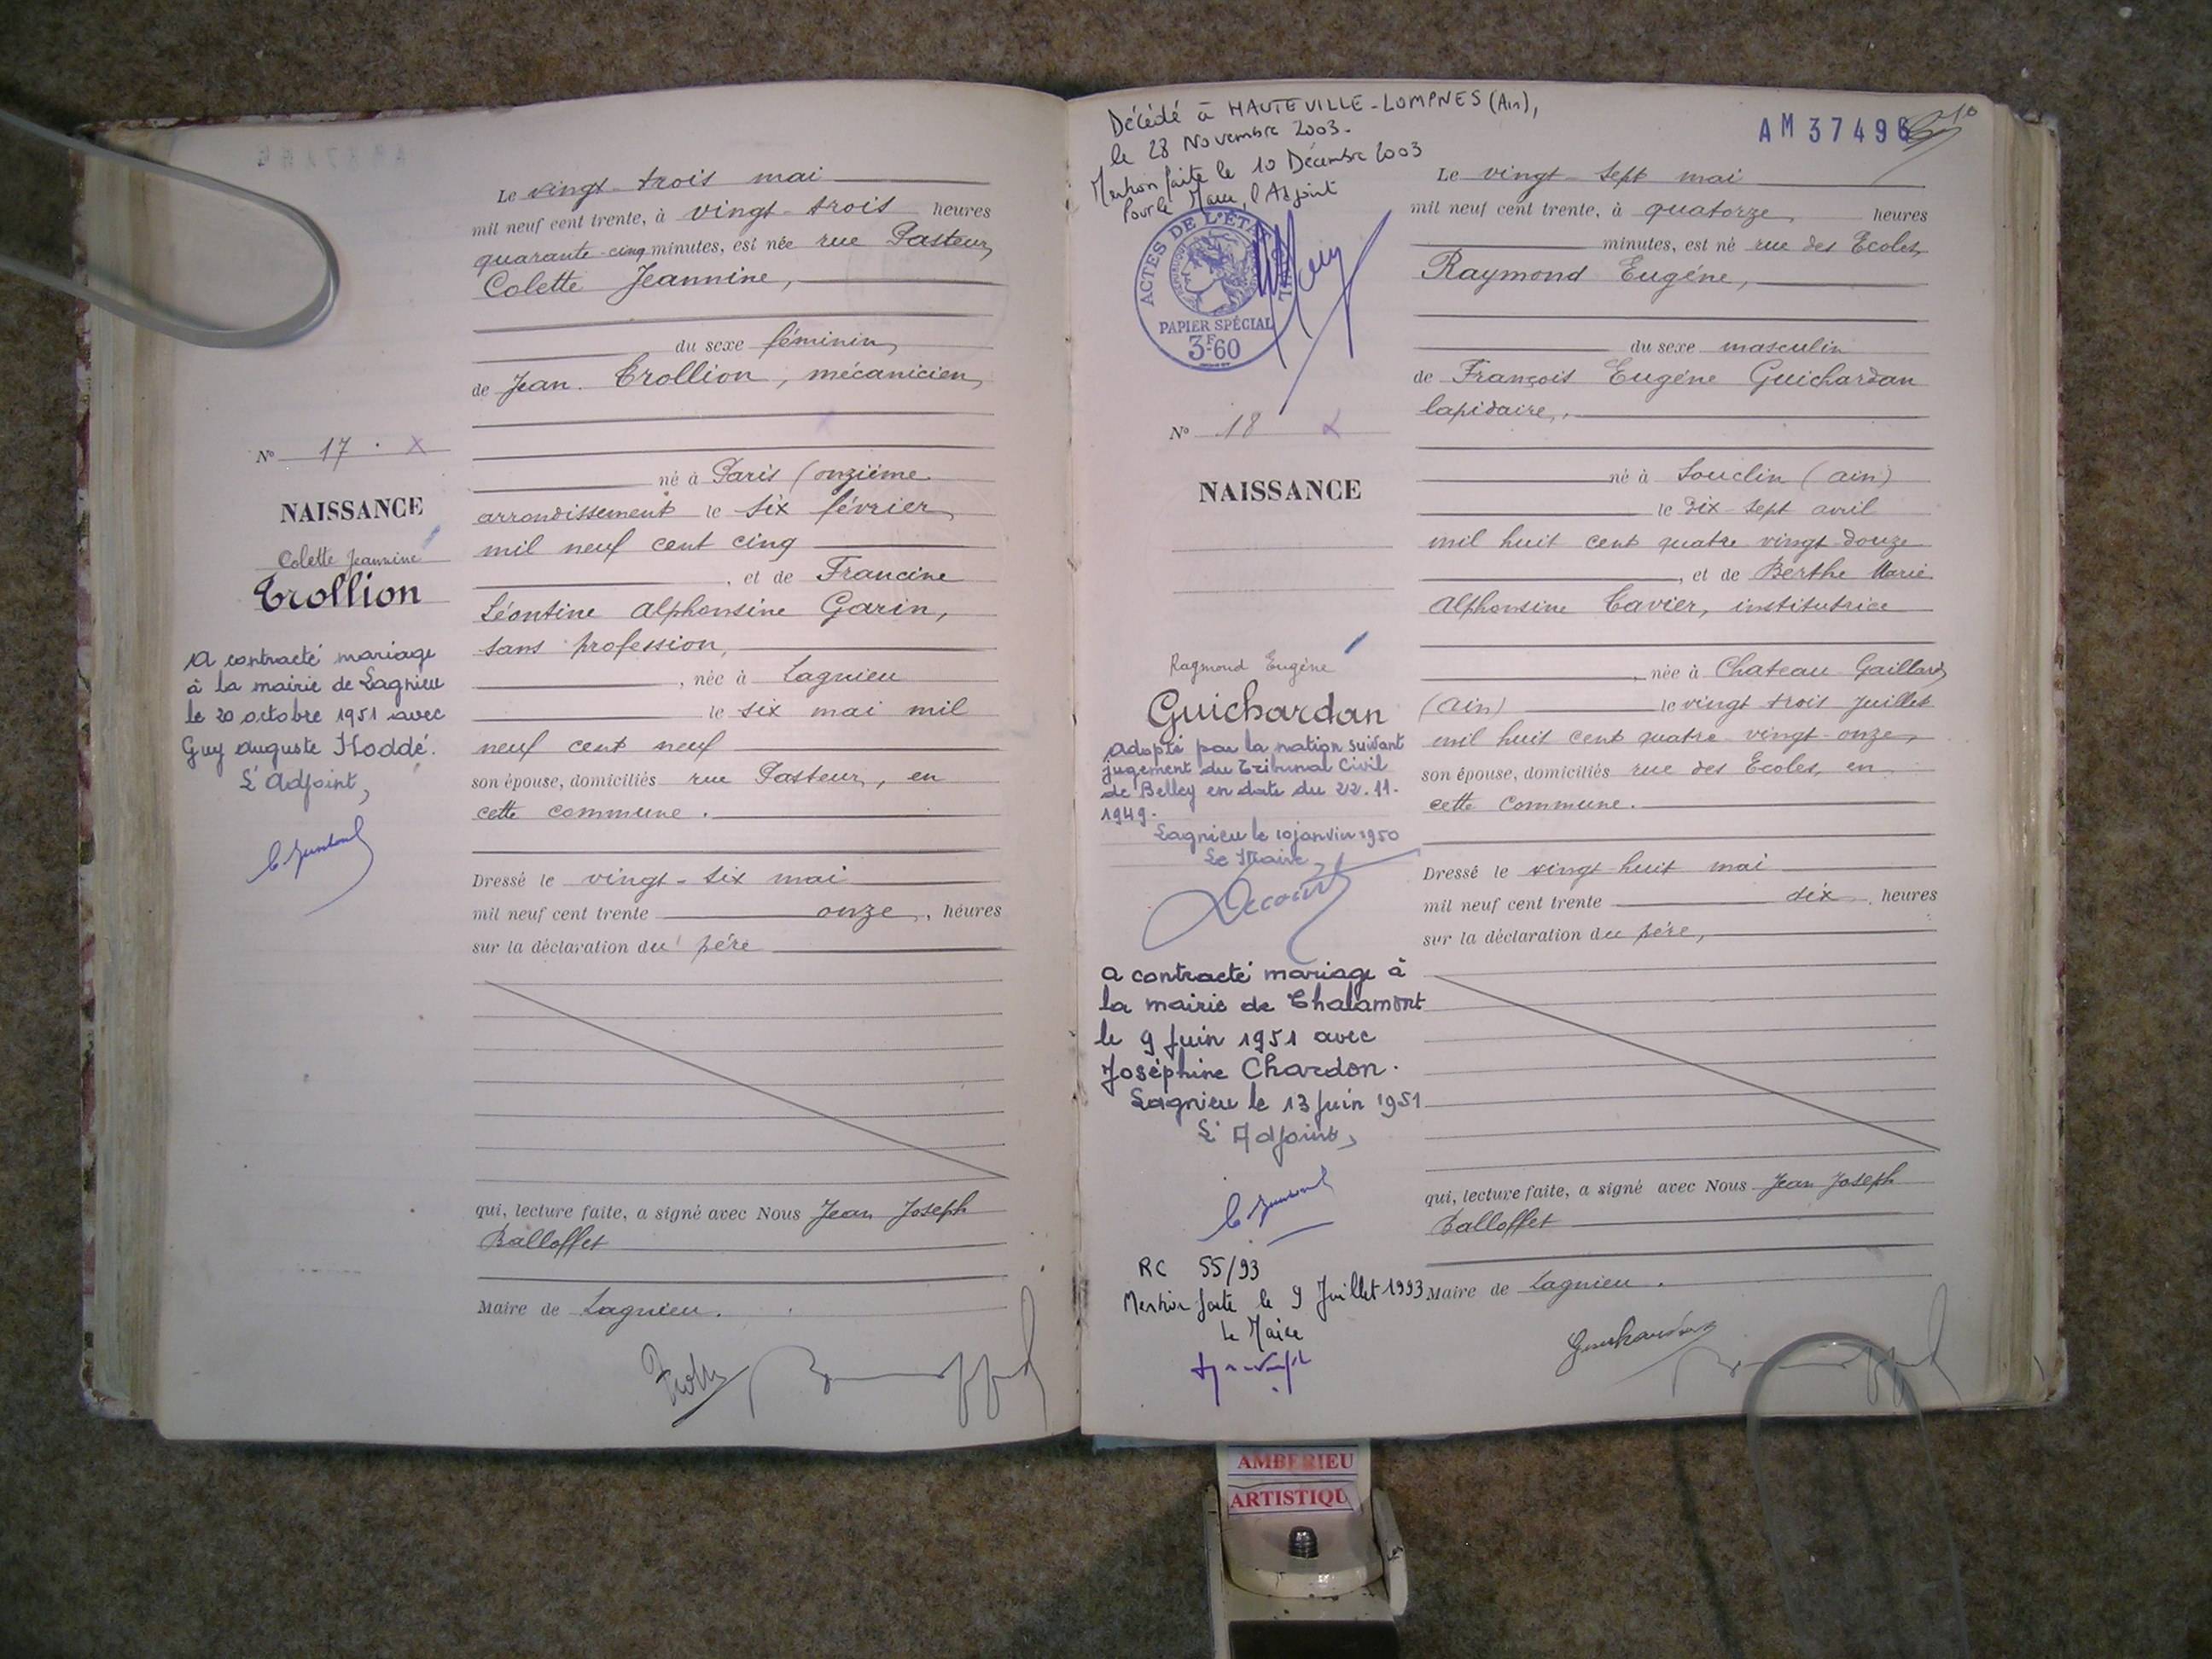 Le vingt-trois mai
mil neuf cent trente, à vingt-trois heures
quarante-cinq minutes, est née rue Pasteur,
Colette Jeannine,
du sexe féminin,
de Jean Trollion, mécanicien,
né à Paris (onzième
arrondissement le six février
mil neuf cent cinq
, et de Francine
Léontine Alphonsine Garin,
sans profession,
, née à Lagnieu
le six mai mil
neuf cent neuf
son épouse, domiciliés rue Pasteur, en
cette commune.
Dressé le vingt-six mai
mil neuf cent trente onze, heures
sur la déclaration du père
qui, lecture faite, a signé avec Nous Jean Joseph
Balloffet
Maire de Lagnieu.
No 17. X
NAISSANCE
Colette Jeannine
Trollion
A contracté mariage
à la mairie de Lagnieu
le 20 octobre 1951 avec
Guy Auguste Hoddé.
L'Adjoint,
Décédé à HAUTEVILLE-LOMPNES (Ain),
le 28 Novembre 2003.
Mention faite le 10 Décembre 2003
Pour le Maire, l'Adjoint
ACTES DE L'ÉTAT
PAPIER SPÉCIAL
3F60
No 18
NAISSANCE
Raymond Eugène
Guichardan
Adopté par la nation suivant
jugement du Tribunal Civil
de Belley en date du 22.11.
1949.
Lagnieu le 10 janvier 1950
Le Maire,
A contracté mariage à
la mairie de Chalamont
le 9 juin 1951 avec
Joséphine Chardon.
Lagnieu le 13 juin 1951
L'Adjoint,
RC 55/93
Mention faite le 9 Juillet 1993
Le Maire
AM 37496
Le vingt-sept mai
mil neuf cent trente, à quatorze, heures
minutes, est né rue des Ecoles,
Raymond Eugène,
du sexe masculin
de François Eugène Guichardan
lapidaire,
né à Souclin (Ain)
le dix-sept avril
mil huit cent quatre vingt-douze
, et de Berthe Marie
Alphonsine Tavier, institutrice
, née à Chateau Gaillard
(Ain) le vingt-trois Juillet
mil huit cent quatre-vingt-onze,
son épouse, domiciliés rue des Ecoles, en
cette commune.
Dressé le vingt-huit mai
mil neuf cent trente dix, heures
sur la déclaration du père,
qui, lecture faite, a signé avec Nous Jean Joseph
Balloffet
Maire de Lagnieu.
Guichardan
AMBERIEU
ARTISTIQU